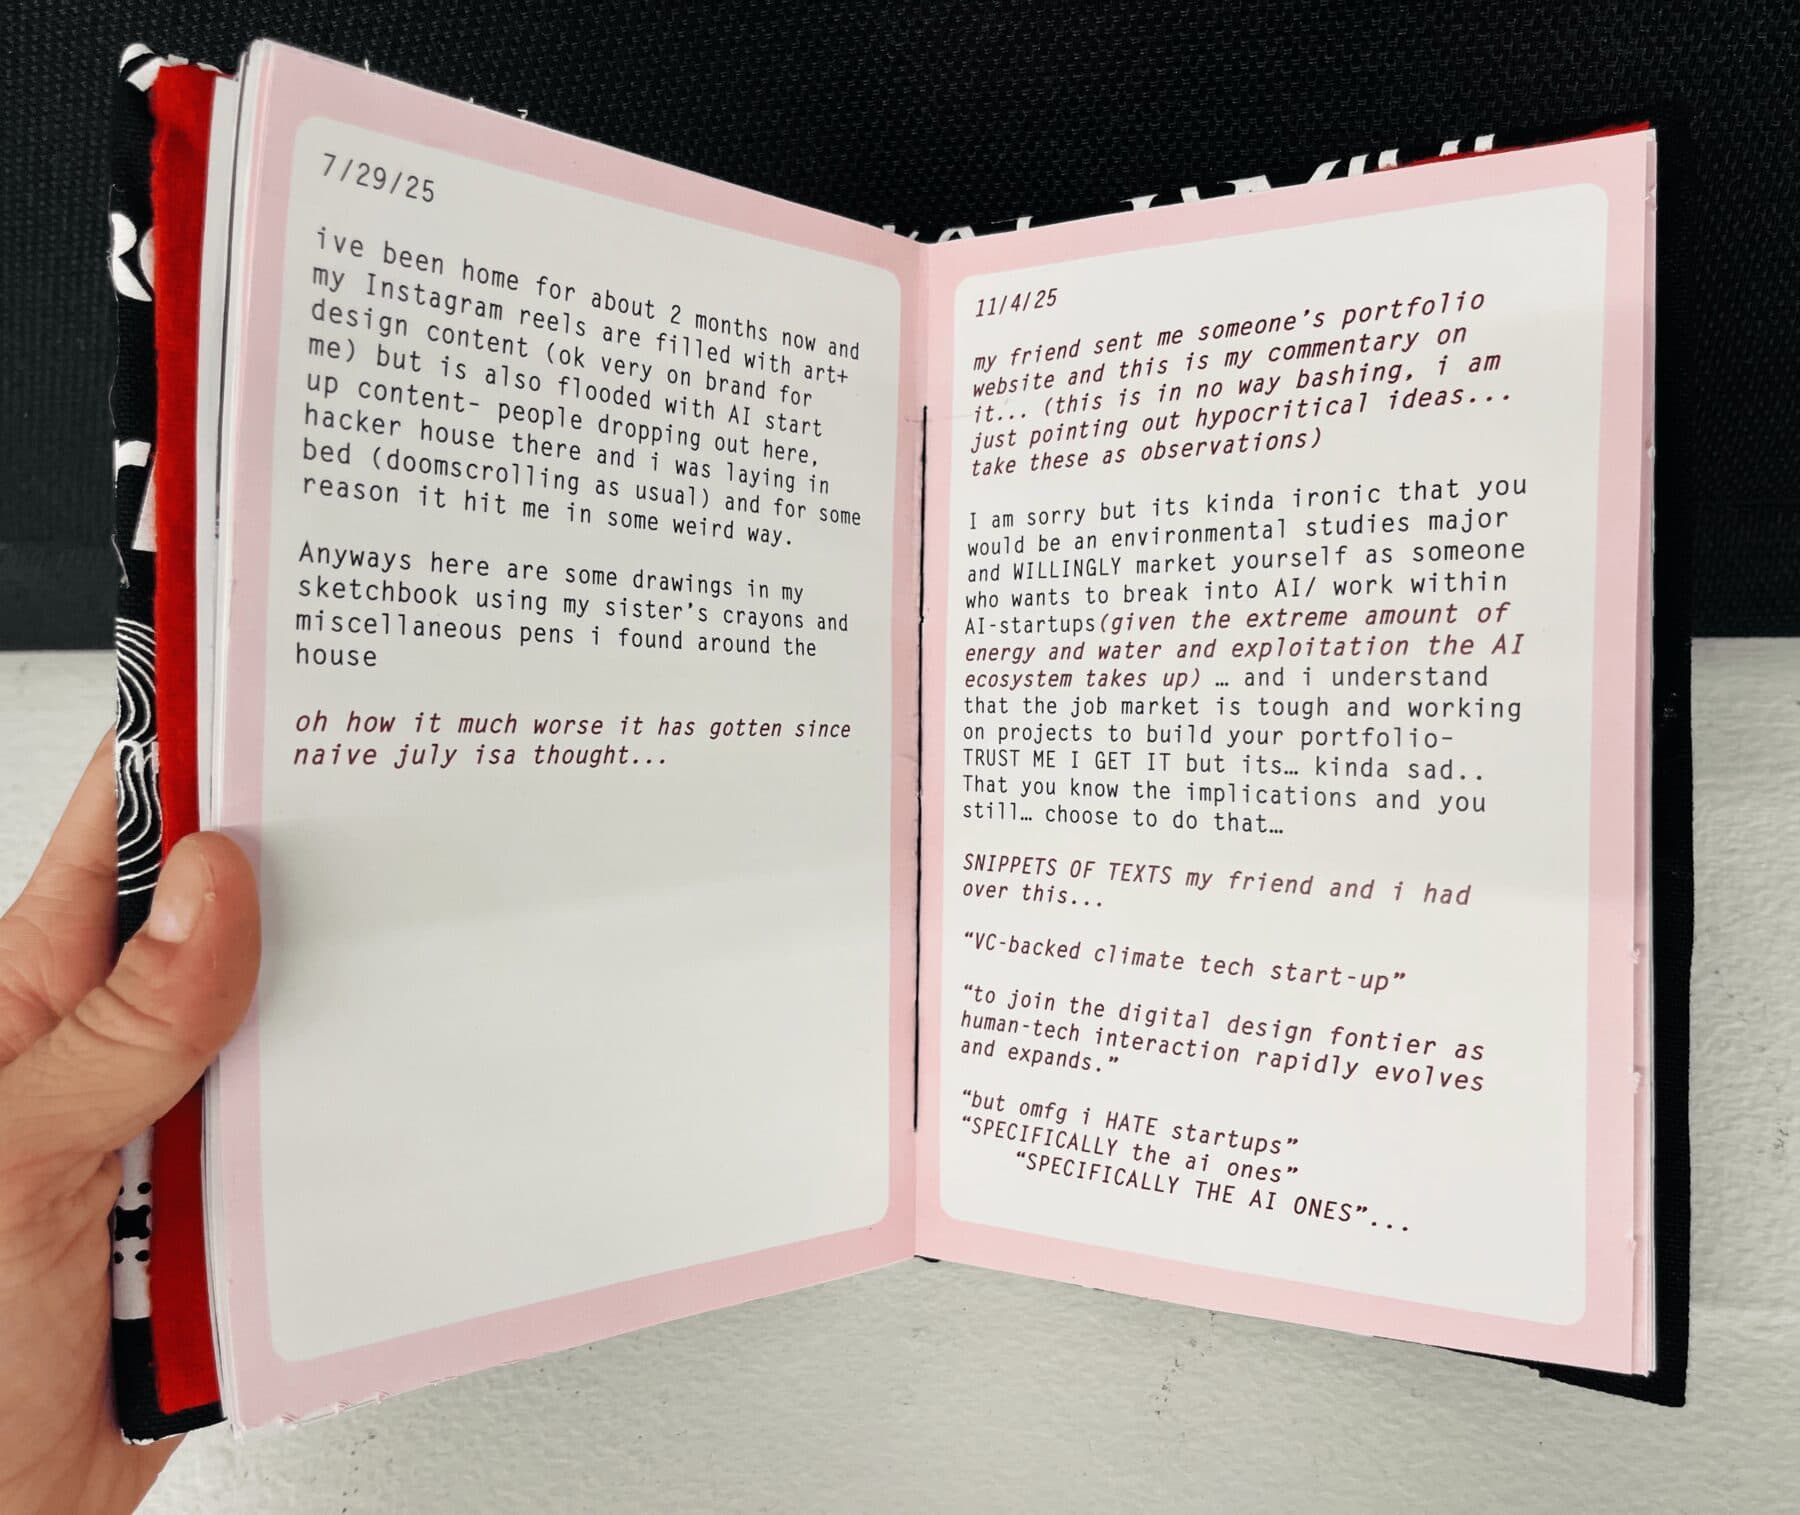 7/29/25
ive been home for about 2 months now and
my Instagram reels are filled with art+
design content (ok very on brand for
me) but is also flooded with AI start
up content- people dropping out here,
hacker house there and i was laying in
bed (doomscrolling as usual) and for some
reason it hit me in some weird way.
Anyways here are some drawings in my
sketchbook using my sister's crayons and
miscellaneous pens i found around the
house
oh how it much worse it has gotten since
naive july isa thought...
11/4/25
my friend sent me someone's portfolio
website and this is my commentary on
it... (this is in no way bashing, i am
just pointing out hypocritical ideas...
take these as observations)
I am sorry but its kinda ironic that you
would be an environmental studies major
and WILLINGLY market yourself as someone
who wants to break into AI/ work within
AI-startups(given the extreme amount of
energy and water and exploitation the AI
ecosystem takes up) … and i understand
that the job market is tough and working
on projects to build your portfolio-
TRUST ME I GET IT but its… kinda sad..
That you know the implications and you
still… choose to do that…
SNIPPETS OF TEXTS my friend and i had
over this...
“VC-backed climate tech start-up”
“to join the digital design fontier as
human-tech interaction rapidly evolves
and expands.”
“but omfg i HATE startups”
“SPECIFICALLY the ai ones”
“SPECIFICALLY THE AI ONES”...